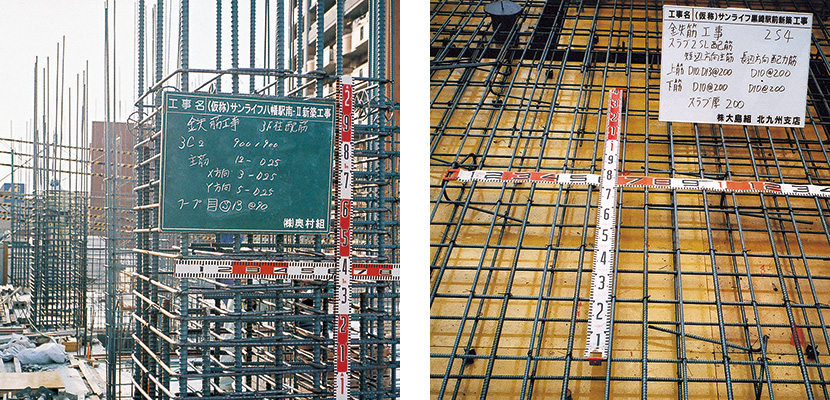 工事名 (仮称)サンライフ八幡駅南-Ⅱ新築工事
鉄筋工事 3F柱配筋
3C2 900×900
主筋 12-D25
X方向 3-D25
Y方向 5-D25
フープ 目 13@90
㈱奥村組
1 2 3 4 5 6 7 8
2
9
8
7
6
5
4
3
2
1
1
工事名 (仮称)サンライフ黒崎駅前新築工事
鉄筋工事 2S4
スラブ2SL配筋
短辺方向主筋 長辺方向配力筋
上筋 D10,D13@200 D10@200
下筋 D10@200 D10@200
スラブ厚 200
㈱大島組 北九州支店